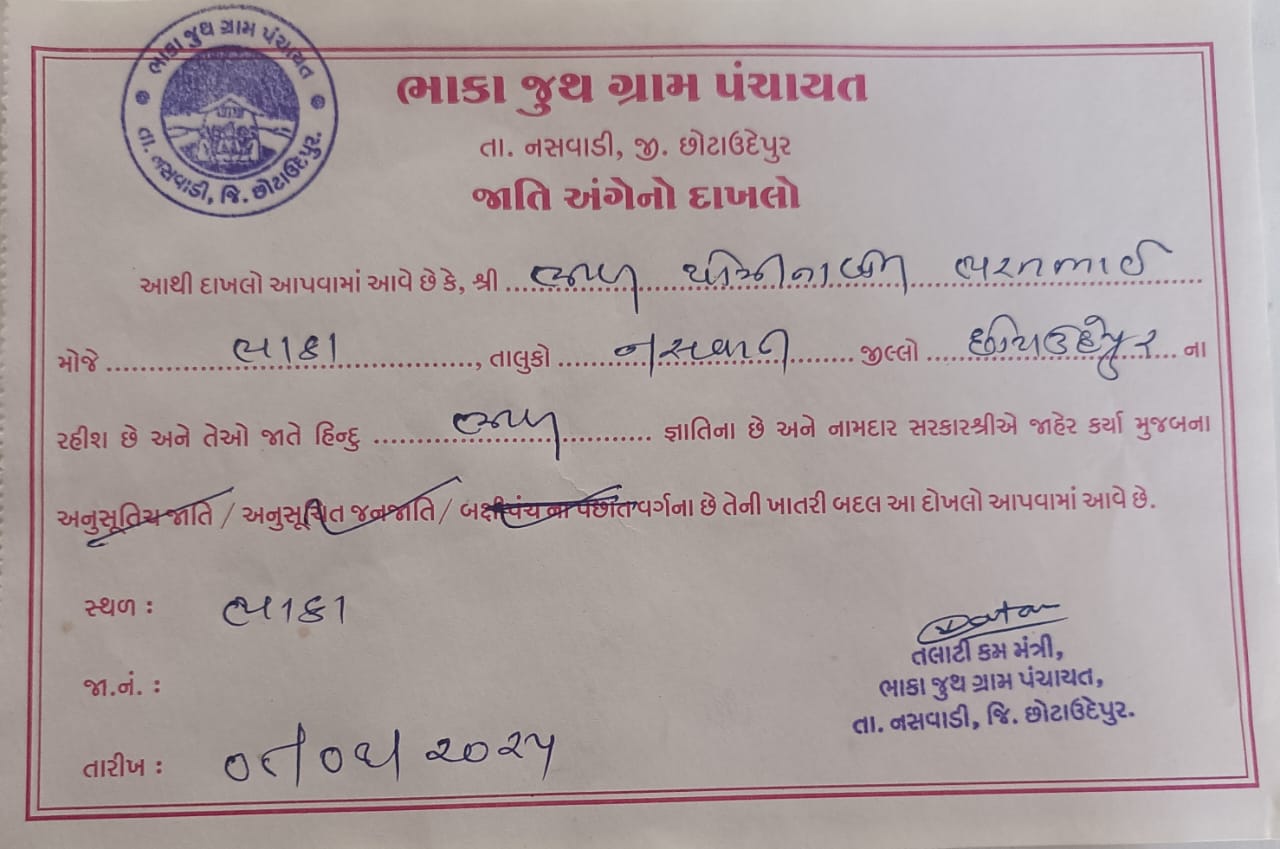 ભાકા જુથ ગ્રામ પંચાયત
તા. નસવાડી, જિ. છોટાઉદેપુર.
ભાકા જુથ ગ્રામ પંચાયત
તા. નસવાડી, જી. છોટાઉદેપુર
જાતિ અંગેનો દાખલો
આથી દાખલો આપવામાં આવે છે કે, શ્રી ભરતભાઈ
મોજે ભાકા, તાલુકો નસવાડી જીલ્લો છોટાઉદેપુર ના
રહીશ છે અને તેઓ જાતે હિન્દુ જ્ઞાતિના છે અને નામદાર સરકારશ્રીએ જાહેર કર્યા મુજબના
અનુસૂતિચ જાતિ / અનુસૂચિત જનજાતિ / બક્ષીપંચ ના પછાત વર્ગના છે તેની ખાતરી બદલ આ દોખલો આપવામાં આવે છે.
સ્થળ : ભાકા
જા.નં. :
તારીખ : ૨૦૨૫
તલાટી કમ મંત્રી,
ભાકા જુથ ગ્રામ પંચાયત,
તા. નસવાડી, જિ. છોટાઉદેપુર.